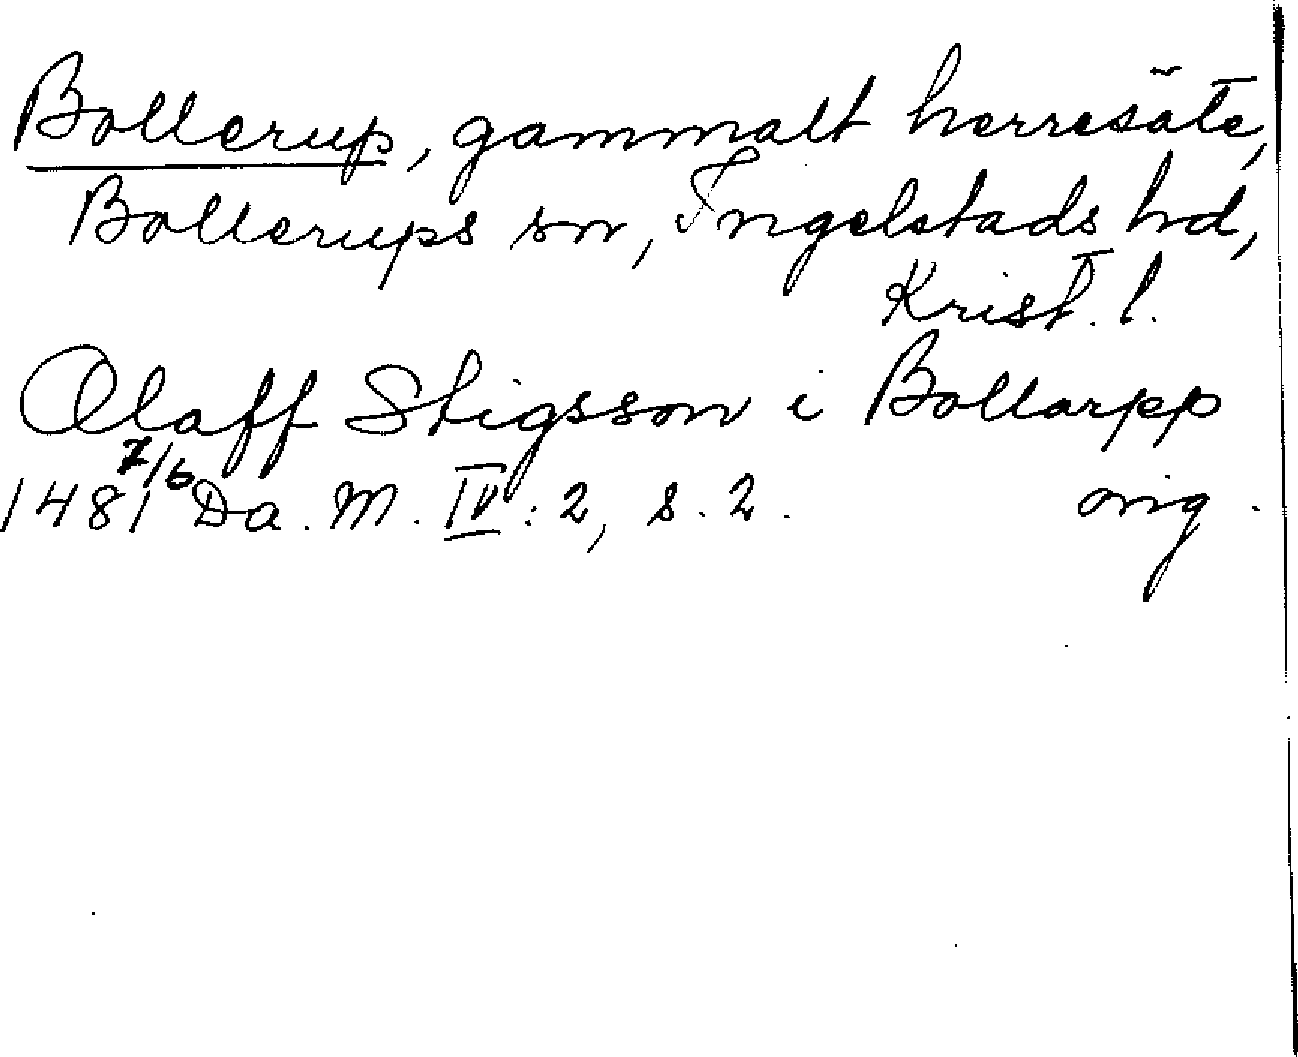 Bollerup, gammalt herresäte,
Bollerups sn, Ingelstads hd,
Krist. l.
Olaff Stigsson i Bollarpp
1481 7/6 Da. M. IV: 2, s. 2. orig.